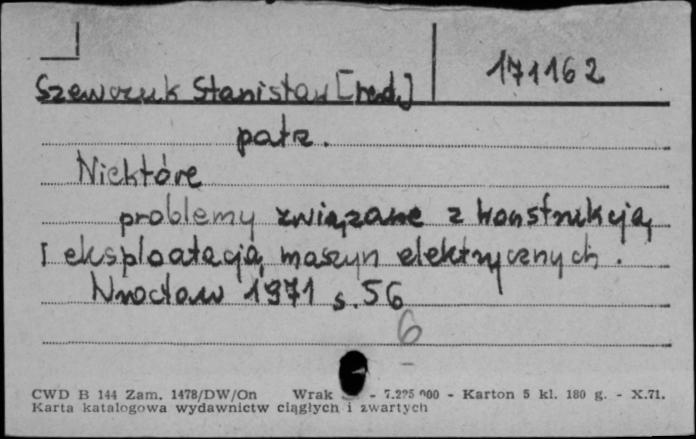 171162
Szewczuk Stanisław [red.]
patrz.
Niektóre
problemy związane z konstrukcją
i eksploatacją maszyn elektrycznych.
Wrocław 1971 s. 56
6
CWD B 144 Zam. 1478/DW/On Wrak - 7.225 000 - Karton 5 kl. 180 g. - X.71.
Karta katalogowa wydawnictw ciągłych i zwartych